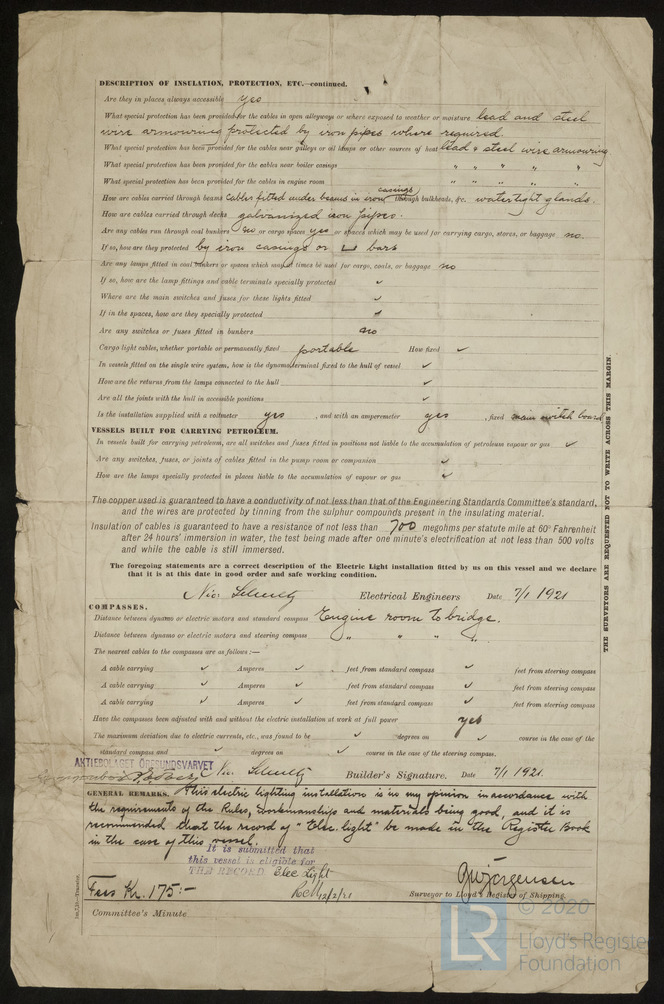 DESCRIPTION OF INSULATION, PROTECTION, ETC.—continued.
Are they in places always accessible yes
What special protection has been provided for the cables in open alleyways or where exposed to weather or moisture lead and steel
wire armouring protected by iron pipes where required.
What special protection has been provided for the cables near galleys or oil lamps or other sources of heat lead & steel wire armouring
What special protection has been provided for the cables near boiler casings " " " " "
What special protection has been provided for the cables in engine room " " " " "
How are cables carried through beams cables fitted under beams in iron casings, through bulkheads, &c. watertight glands.
How are cables carried through decks galvanized iron pipes.
Are any cables run through coal bunkers no or cargo spaces yes or spaces which may be used for carrying cargo, stores, or baggage no.
If so, how are they protected by iron casings or bars
Are any lamps fitted in coal bunkers or spaces which may at times be used for cargo, coals, or baggage no
If so, how are the lamp fittings and cable terminals specially protected ✓
Where are the main switches and fuses for these lights fitted ✓
If in the spaces, how are they specially protected ✓
Are any switches or fuses fitted in bunkers no
Cargo light cables, whether portable or permanently fixed portable How fixed ✓
In vessels fitted on the single wire system, how is the dynamo terminal fixed to the hull of vessel ✓
How are the returns from the lamps connected to the hull ✓
Are all the joints with the hull in accessible positions ✓
Is the installation supplied with a voltmeter yes , and with an amperemeter yes , fixed main switch board
VESSELS BUILT FOR CARRYING PETROLEUM.
In vessels built for carrying petroleum, are all switches and fuses fitted in positions not liable to the accumulation of petroleum vapour or gas ✓
Are any switches, fuses, or joints of cables fitted in the pump room or companion ✓
How are the lamps specially protected in places liable to the accumulation of vapour or gas ✓
The copper used is guaranteed to have a conductivity of not less than that of the Engineering Standards Committee's standard,
and the wires are protected by tinning from the sulphur compounds present in the insulating material.
Insulation of cables is guaranteed to have a resistance of not less than 700 megohms per statute mile at 60° Fahrenheit
after 24 hours' immersion in water, the test being made after one minute's electrification at not less than 500 volts
and while the cable is still immersed.
The foregoing statements are a correct description of the Electric Light installation fitted by us on this vessel and we declare
that it is at this date in good order and safe working condition.
Electrical Engineers Date 7/1 1921
COMPASSES.
Distance between dynamo or electric motors and standard compass Engine room to bridge.
Distance between dynamo or electric motors and steering compass " " "
The nearest cables to the compasses are as follows:—
A cable carrying ✓ Amperes ✓ feet from standard compass ✓ feet from steering compass
A cable carrying ✓ Amperes ✓ feet from standard compass ✓ feet from steering compass
A cable carrying ✓ Amperes ✓ feet from standard compass ✓ feet from steering compass
Have the compasses been adjusted with and without the electric installation at work at full power yes
The maximum deviation due to electric currents, etc., was found to be ✓ degrees on ✓ course in the case of the
standard compass and ✓ degrees on ✓ course in the case of the steering compass.
AKTIEBOLAGET ÖRESUNDSVARVET
Builder's Signature. Date 7/1 1921.
GENERAL REMARKS. This electric lighting installation is in my opinion in accordance with
the requirements of the Rules, workmanship and materials being good, and it is
recommended that the record of "Elec. light" be made in the Register Book
in the case of this vessel.
It is submitted that
this vessel is eligible for
THE RECORD Elec Light
12/2/21
Fees Kr. 175:-
Jörgensen
Surveyor to Lloyd's Register of Shipping.
Committee's Minute
THE SURVEYORS ARE REQUESTED NOT TO WRITE ACROSS THIS MARGIN.
© 2020
LR
Lloyd's Register
Foundation